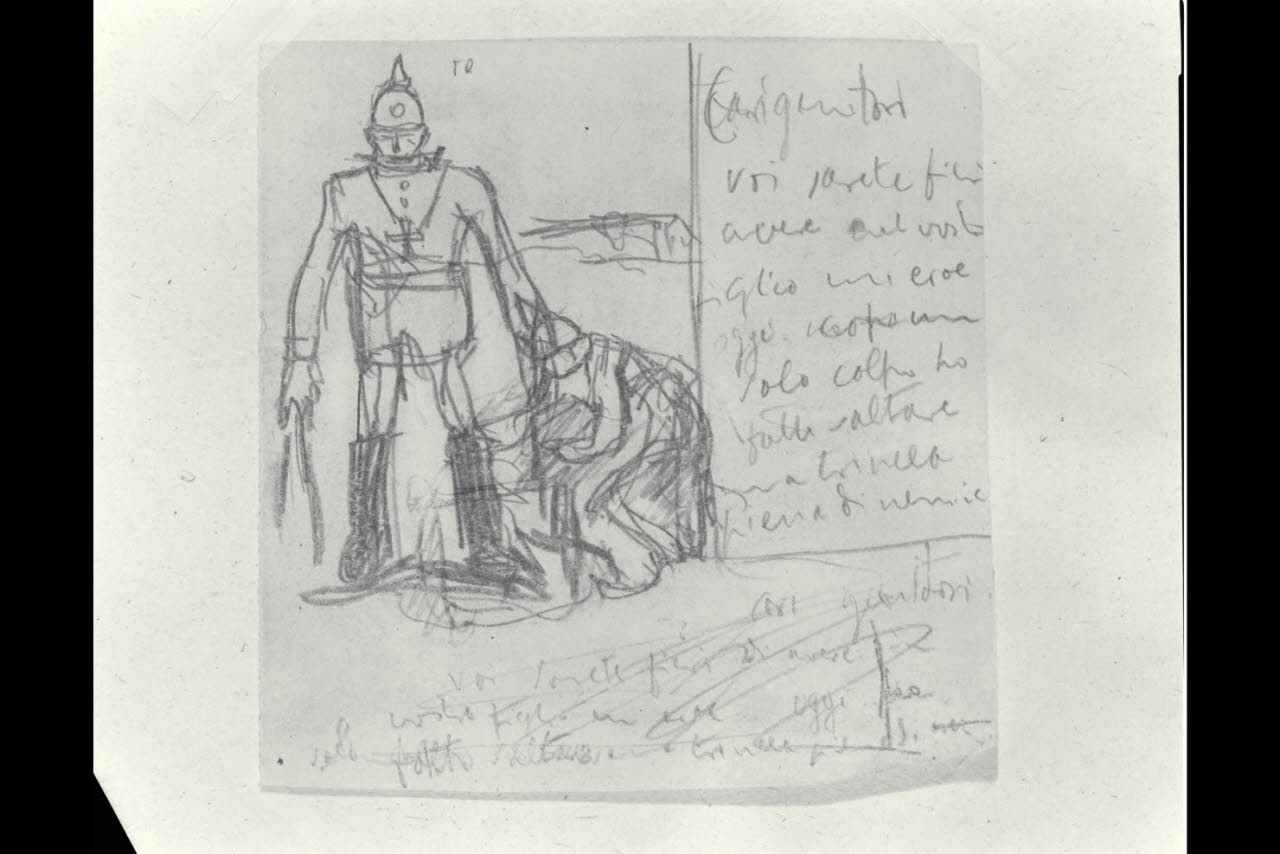 Cari genitori
voi sarete fieri
avere nel vostro
figlio un eroe
oggi un
solo colpo ho
fatto saltare
una trincea
piena di nemici
cari genitori
voi sarete fieri di avere
vostro figlio un eroe oggi
solo fatto saltare trincea